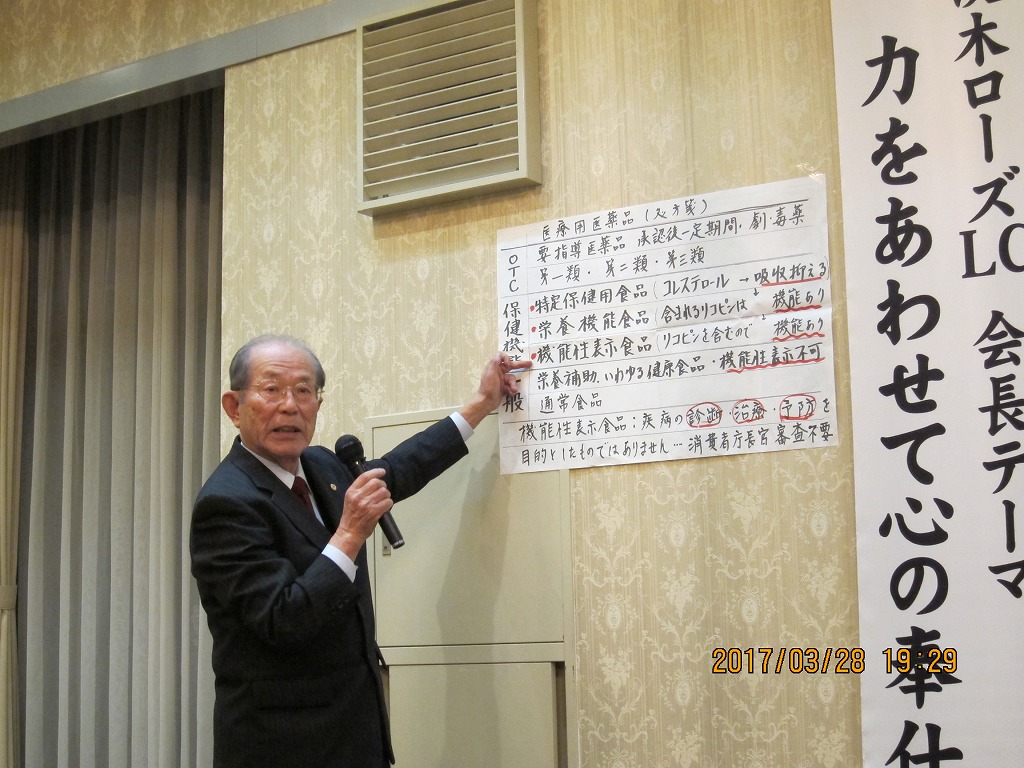 医療用医薬品(処方箋)
要指導医薬品 承認後一定期間、劇・毒薬
OTC
第一類・第二類・第三類
保健機
・特定保健用食品(コレステロール → 吸収抑える)
・栄養機能食品(含まれるリコピンは、機能あり
・機能性表示食品(リコピンを含むので、機能あり
栄養補助、いわゆる健康食品・機能性表示不可
般
通常食品
機能性表示食品:疾病の診断・治療・予防を
目的としたものではありません…消費者庁長官審査不要
木ローズLC 会長テーマ
力をあわせて心の奉仕
2017/03/28 19:29